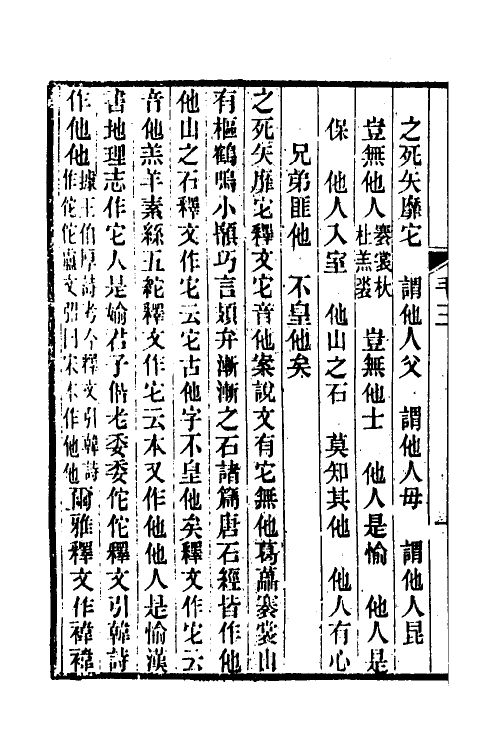 之死矢靡它　謂他人父　謂他人母　謂他人昆
豈無他人褰裳杕杜羔裘　豈無他士　他人是愉　他人是
保　他人入室　他山之石　莫知其他　他人有心
兄弟匪他　不皇他矣
之死矢靡它釋文它音他案說文有它無他葛藟褰裳山
有樞鶴鳴小𢍰巧言頍弁漸漸之石諸篇唐石經皆作他
他山之石釋文作它云它古他字不皇他矣釋文作它云
音他羔羊素絲五紽釋文作它云本又作他他人是愉漢
書地理志作它人是媮君子偕老委委佗佗釋文引韓詩
作他他據王伯厚詩考今釋文引韓詩作佗佗盧文弨曰宋本作他他爾雅釋文作褘褘